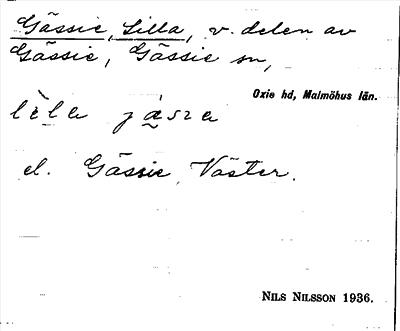 Gässie, Lilla, v. delen av
Gässie, Gässie sn,
Oxie hd, Malmöhus län.
el. Gässie, Väster.
NILS NILSSON 1936.